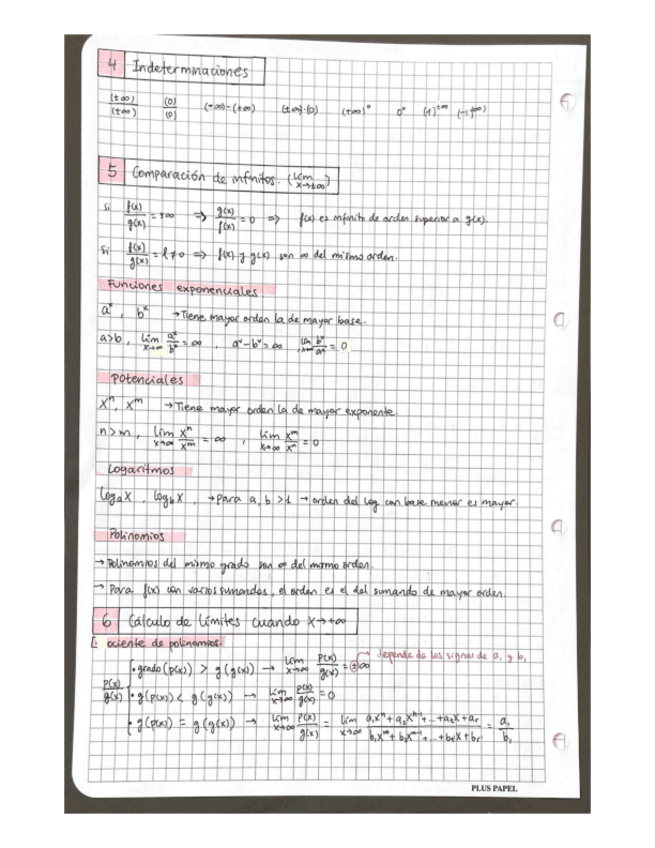 4 Indeterminaciones
(±∞)/(±∞) (0)/(0) (+∞)-(+∞) (±∞)·(0) (+∞)⁰ 0⁰ (1)^±∞
5 Comparación de infinitos. (lim x→±∞)
Si f(x)/g(x) = ±∞ ⇒ g(x)/f(x) = 0 ⇒ f(x) es infinito de orden superior a g(x).
Si f(x)/g(x) = l ≠ 0 ⇒ f(x) y g(x) son ∞ del mismo orden.
Funciones exponenciales
aˣ, bˣ → Tiene mayor orden la de mayor base.
a>b, lim x→∞ aˣ/bˣ = ∞, aˣ-bˣ = ∞ lim x→∞ bˣ/aˣ = 0
Potenciales
xⁿ, xᵐ → Tiene mayor orden la de mayor exponente.
n>m, lim x→∞ xⁿ/xᵐ = ∞, lim x→∞ xᵐ/xⁿ = 0
Logaritmos
logₐx, log_b x, → para a, b >1 → orden del log con base menor es mayor.
Polinomios
→ Polinomios del mismo grado son ∞ del mismo orden.
→ Para f(x) con varios sumandos, el orden es el del sumando de mayor orden.
6 Cálculo de límites cuando x→+∞
Cociente de polinomios.
→ depende de los signos de a₁ y b₁
p(x)/g(x) { · grado(p(x)) > g(g(x)) → lim x→∞ p(x)/g(x) = ±∞
· g(p(x)) < g(g(x)) → lim x→∞ p(x)/g(x) = 0
· g(p(x)) = g(g(x)) → lim x→∞ p(x)/g(x) = lim x→∞ = a₁/b₁
PLUS PAPEL